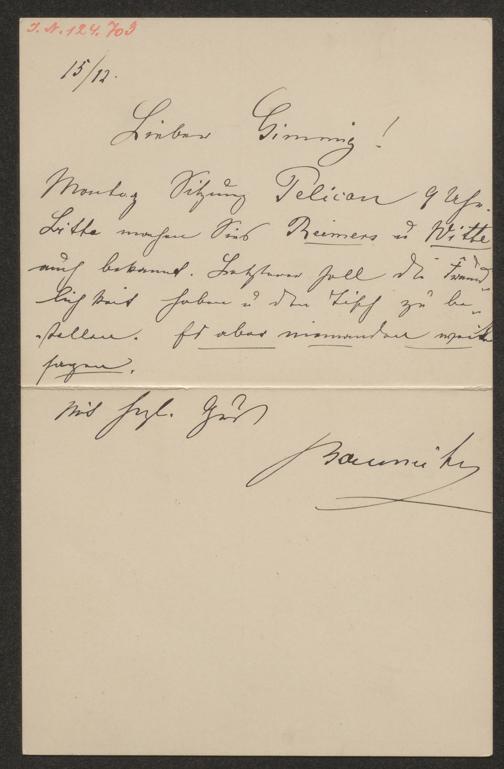 J. N. 124.703
15/12.
Lieber Gimnig!
Montag Sitzung Pelican 9 Uhr.
Bitte machen Sies Reimers u Witte
auch bekannt. Letzterer soll die Freund„
lichkeit haben u den Tisch zu be„
stellen. Es aber niemanden weiter
sagen.
Mit hrzl. Gruß